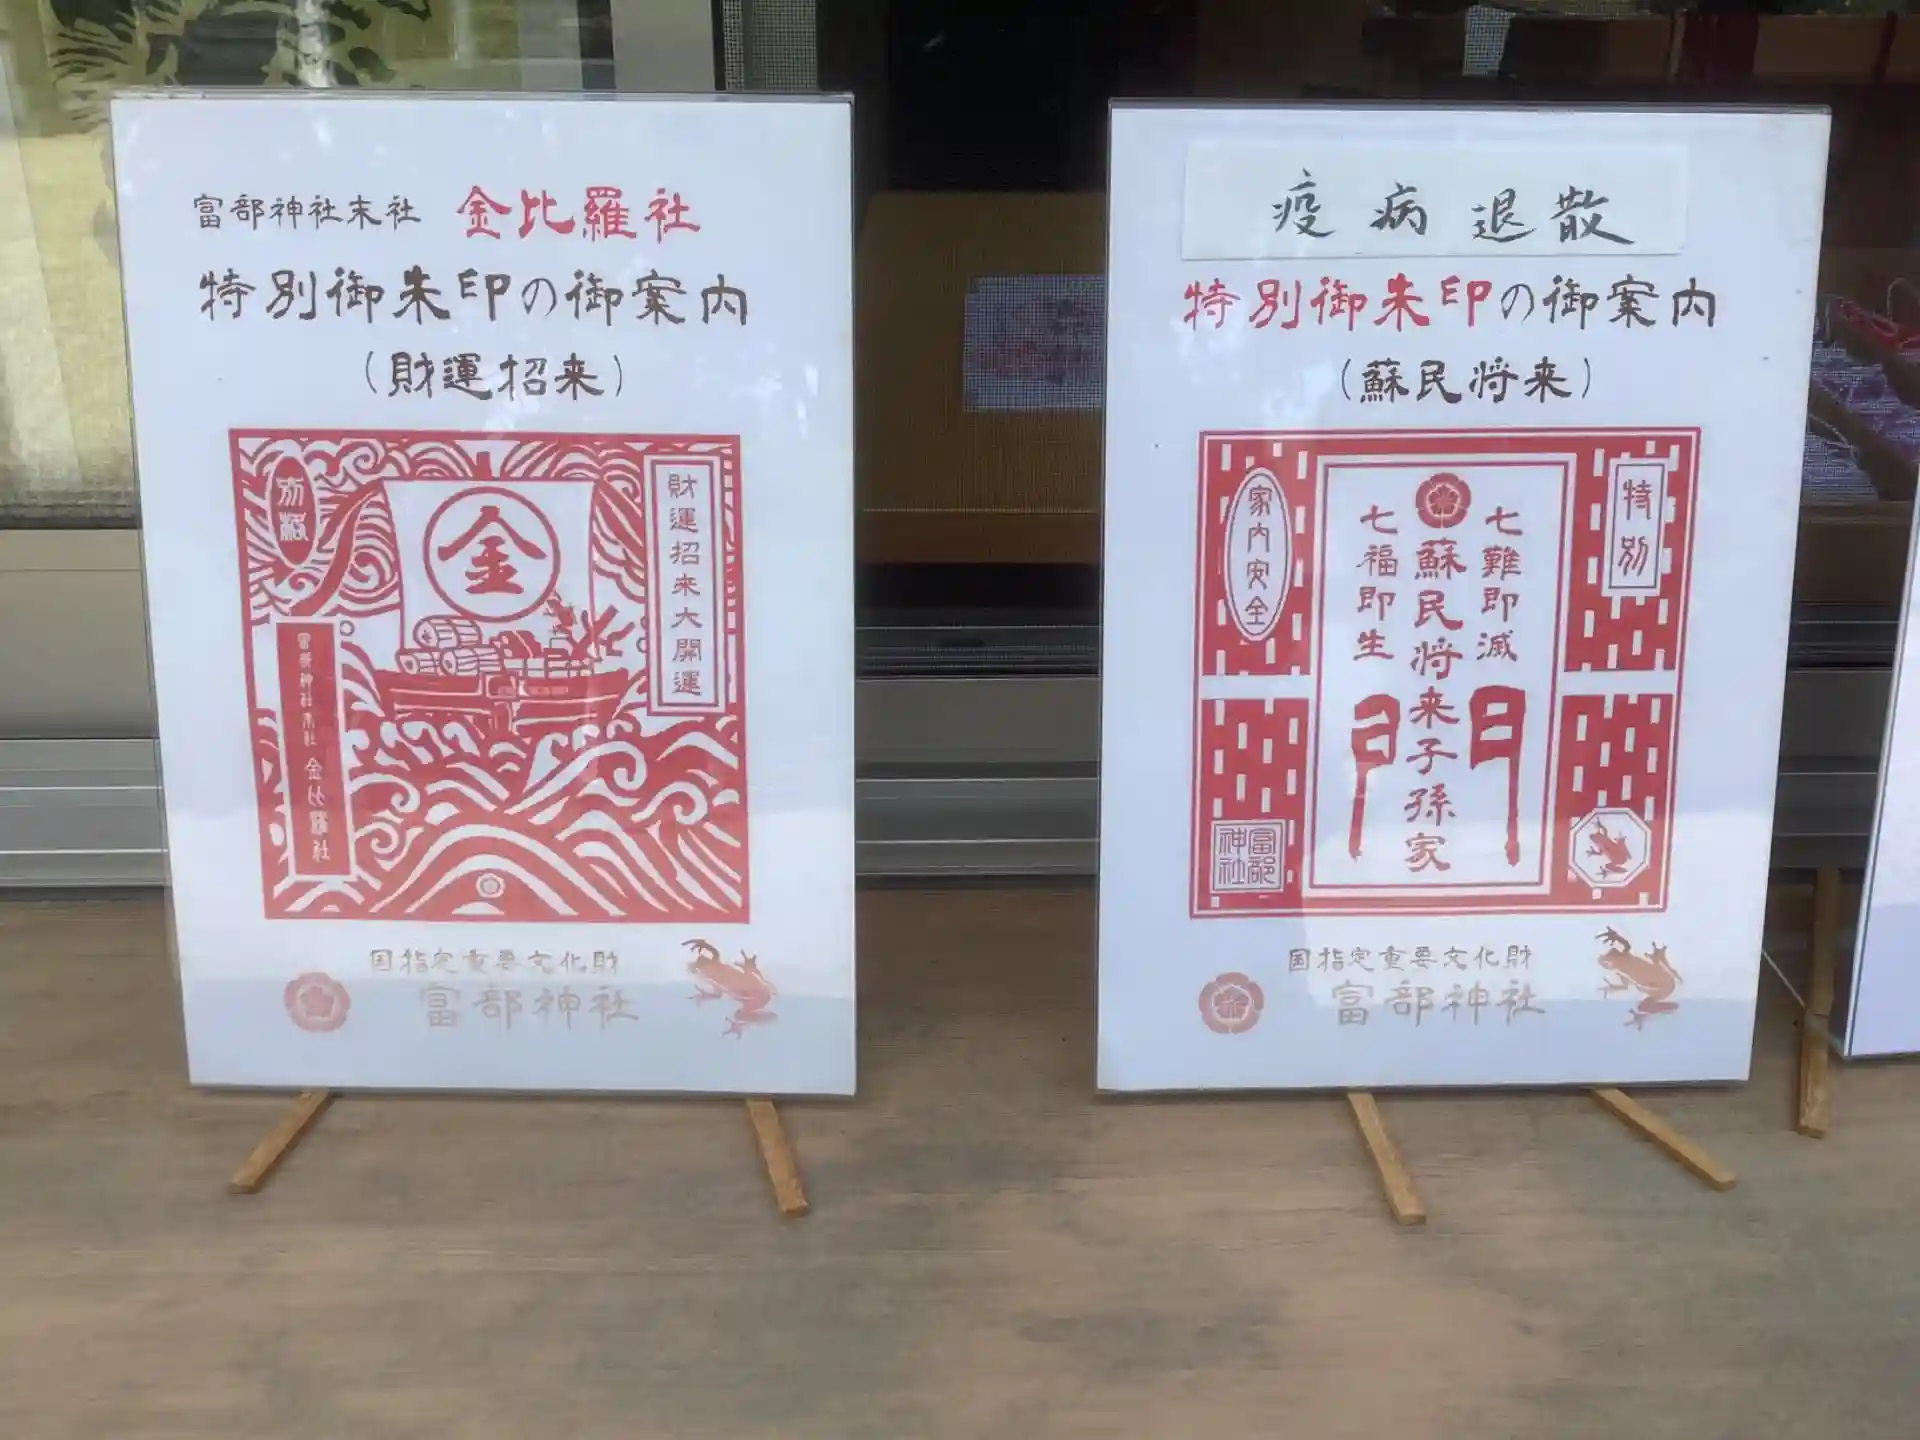 富部神社末社 金比羅社
特別御朱印の御案内
(財運招来)
別 
金
財運招来大開運
富部神社末社 金比羅社
国指定重要文化財
富部神社
疫病退散
特別御朱印の御案内
(蘇民将来)
特別
七難即滅
蘇民将来子孫家門
七福即生
家内安全
富部神社
国指定重要文化財
富部神社